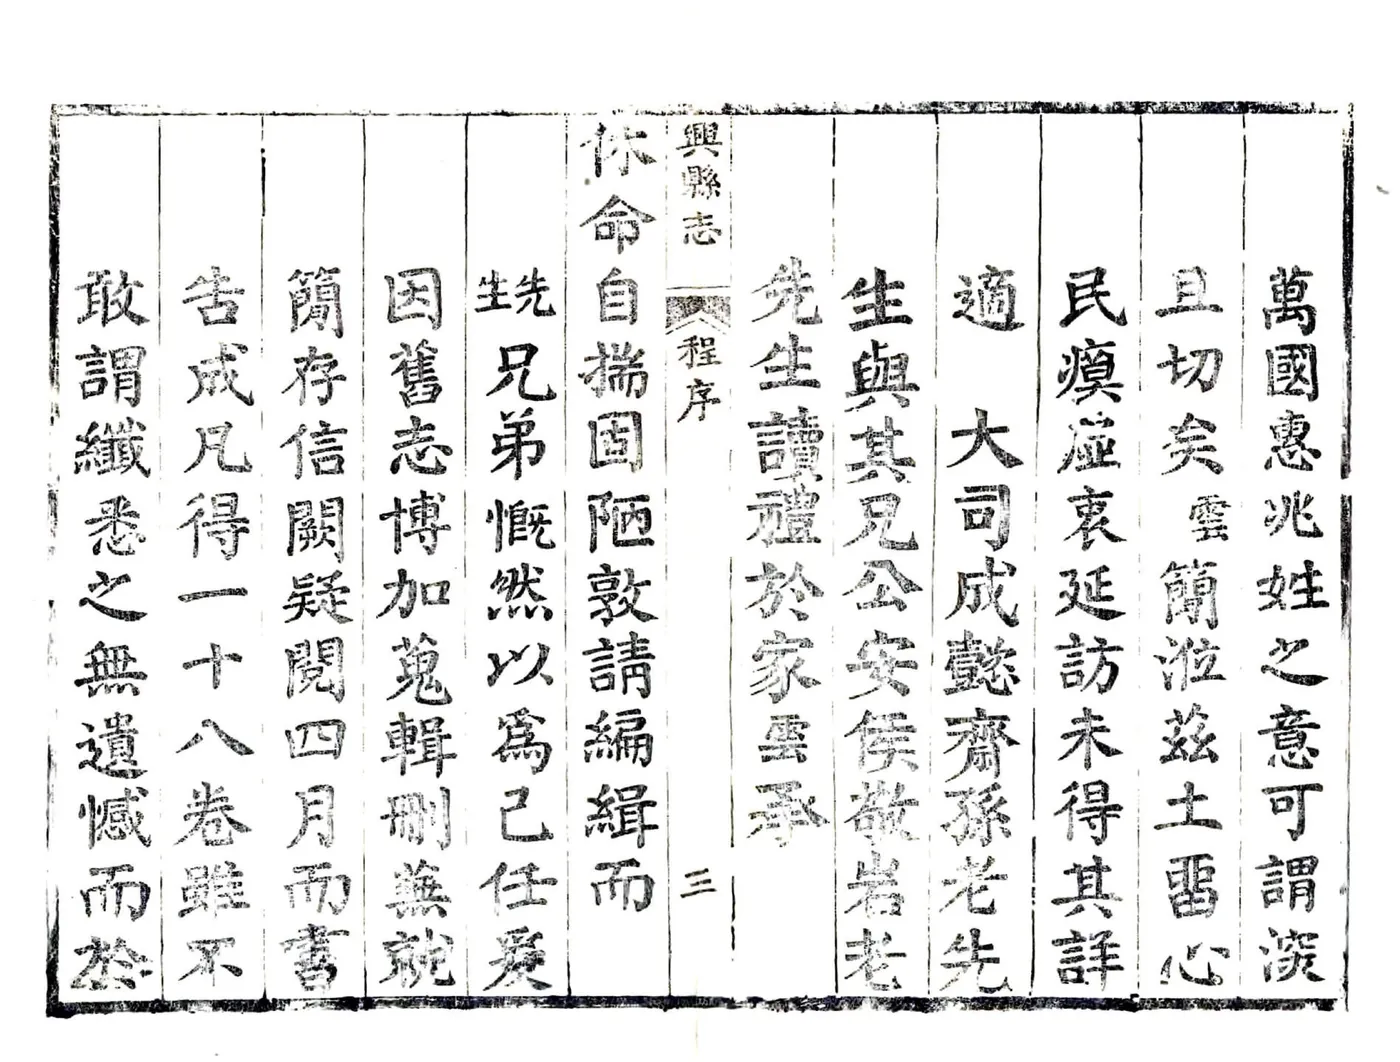 萬國惠兆姓之意可謂深
且切矣雲簡涖茲土留心
民瘼虛衷延訪未得其詳
適　大司成懿齋孫老先
生與其兄公安侯敬岩老
先生讀禮於家雲承
興縣志　程序　三
休命自揣固陋敦請編緝而
先生兄弟慨然以爲己任爰
因舊志博加蒐輯刪蕪就
簡存信闕疑閱四月而書
告成凡得一十八卷雖不
敢謂纖悉之無遺憾而於